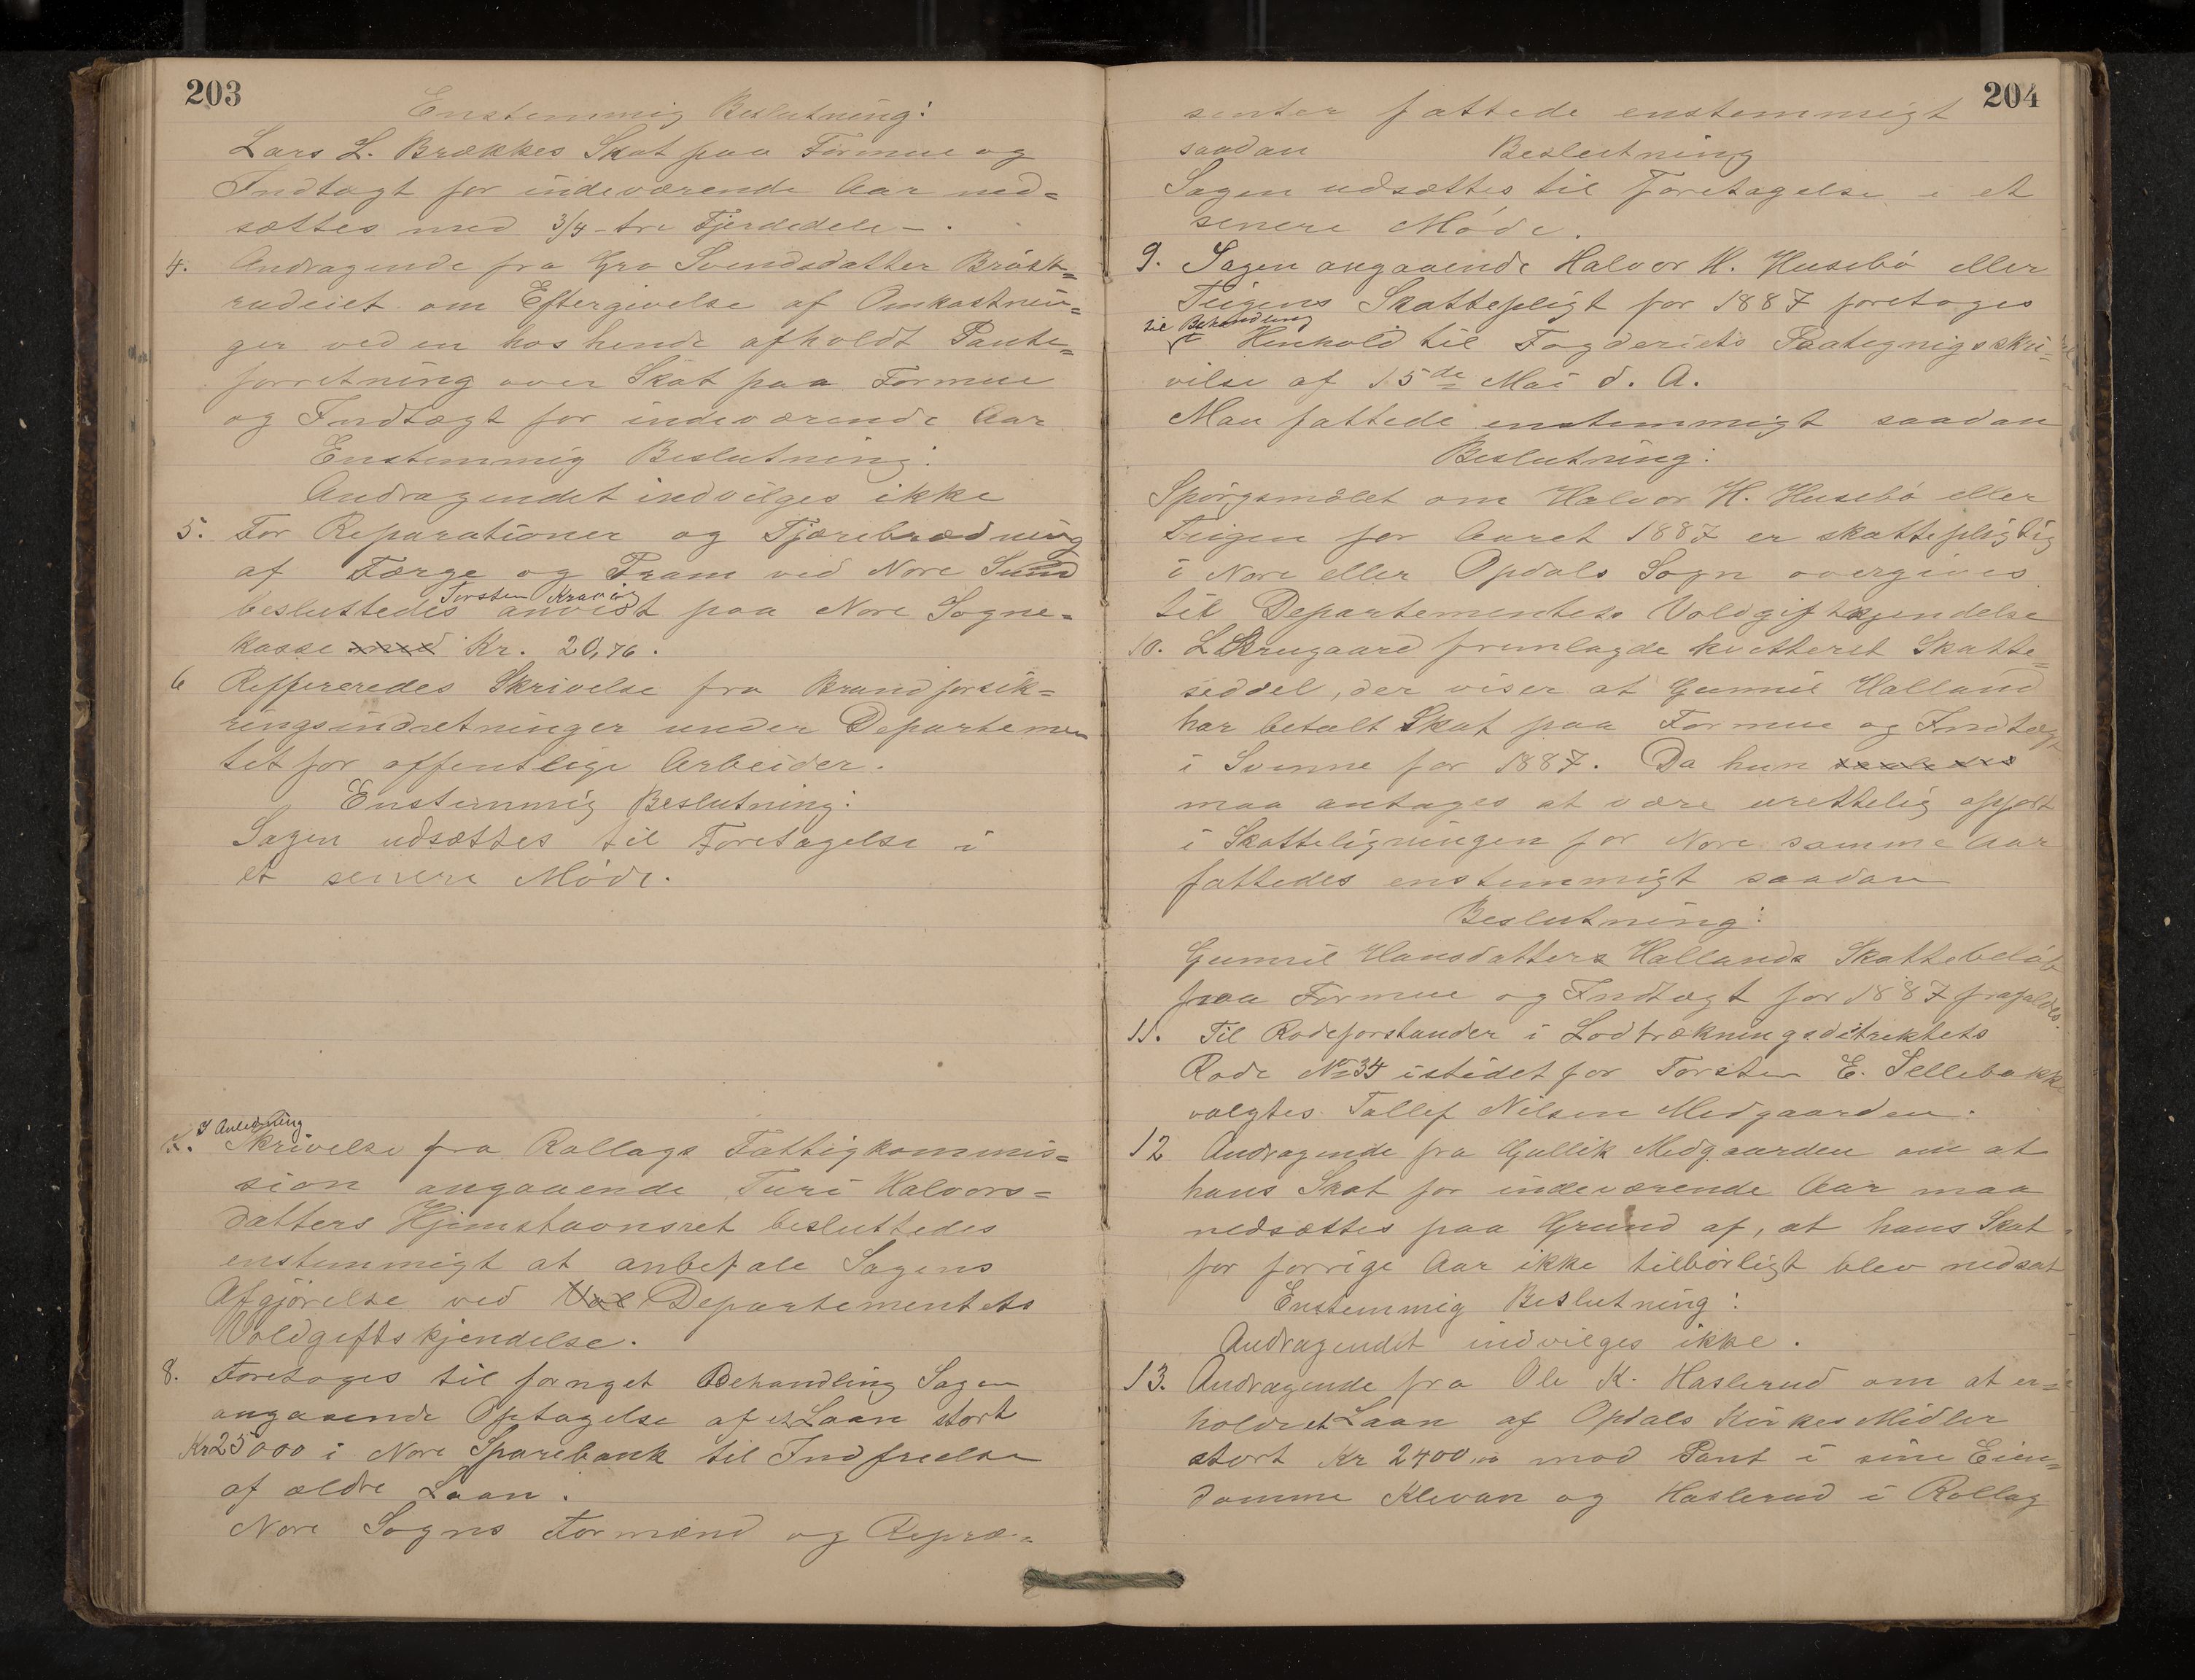 203
Enstemmig Beslutning:
Lars L. Brækkes Skat paa Formue og
Indtægt for indeværende Aar ned=
sættes med 3/4 - tre Fjerdedele - .
4. Andragende fra Gro Svendsdatter Bröst=
rudeiet om Eftergivelse af Omkostnin=
ger ved en hos hende afholdt Pante=
forretning over Skat paa Formue
og Indtægt for indeværende Aar
Enstemmig Beslutning:
Andragendet indvilges ikke
5. For Reparationer og Tjærebrædning
af Færge og Pram ved Nore Sund
Torsten Kravig
besluttedes anvist paa Nore Sogne=
kasse med Kr. 20,76.
6 Reffereredes Skrivelse fra Brandforsik=
ringsindretninger under Departemen
tet for offentlige Arbeider.
Enstemmig Beslutning:
Sagen udsættes til Foretagelse i
et senere Möde.
I Anledning
7. Skrivelse fra Rollags Fattigkommis=
sion angaaende Turi Halvors=
datters Hjemstavnsret besluttedes
enstemmigt at anbefale Sagens
Afgjörelse ved Vol Departementets
Voldgiftskjendelse.
8. Foretoges til fornyet Behandling Sagen
angaaende Optagelse af et Laan stort
Kr 25000 i Nore Sparebank til Indfrielse
af ældre Laan.
Nore Sogns Formænd og Repræ=
204
senter fattede enstemmigt
saadan Beslutning
Sagen udsættes til Foretagelse i et
senere Möde.
9. Sagen angaaende Halvor H. Husebö eller
Teigens Skattepligt for 1887 foretoges
til Behandling
i Henhold til Fogderiets Paategnigsskri=
velse af 15de Mai d. A.
Man fattede enstemmigt saadan
Beslutning:
Spörgsmålet om Halvor H. Husebö eller
Teigen for Aaret 1887 er skattepligtig
i Nore eller Opdals Sogn overgives
til Departementets Voldgiftskjendelse
10. L Skrugaard fremlagde kvitteret Skatte=
seddel, der viser at Gunnil Halland
har betalt Skat paa Formue og Indtægt
i Svenne for 1887. Da hun saaledes
maa antages at være urettelig opfört
i Skatteligningen for Nore samme Aar
fattedes enstemmigt saadan
Beslutning:
Gunnil Hansdatters Hallands Skattebelöb
paa Formue og Indtægt for 1887 frafaldes.
11. Til Rodeforstander i Lodtrækningsdistriktets
Rode No 34 istedet for Torsten E. Sellebakk
valgtes Tollef Nilsen Medgaarden.
12 Andragende fra Gullik Medgaarden om at
hans Skat for indeværende Aar maa
nedsættes paa Grund af, at hans Skat
for forrige Aar ikke tilbörligt blev nedsat
Enstemmig Beslutning:
Andragendet indvilges ikke.
13. Andragende fra Ole K. Haslerud om at er=
holde et Laan af Opdals Kirkes Midler
stort Kr 2400,00 mod Pant i sine Eien=
domme Klevan og Haslerud i Rollag